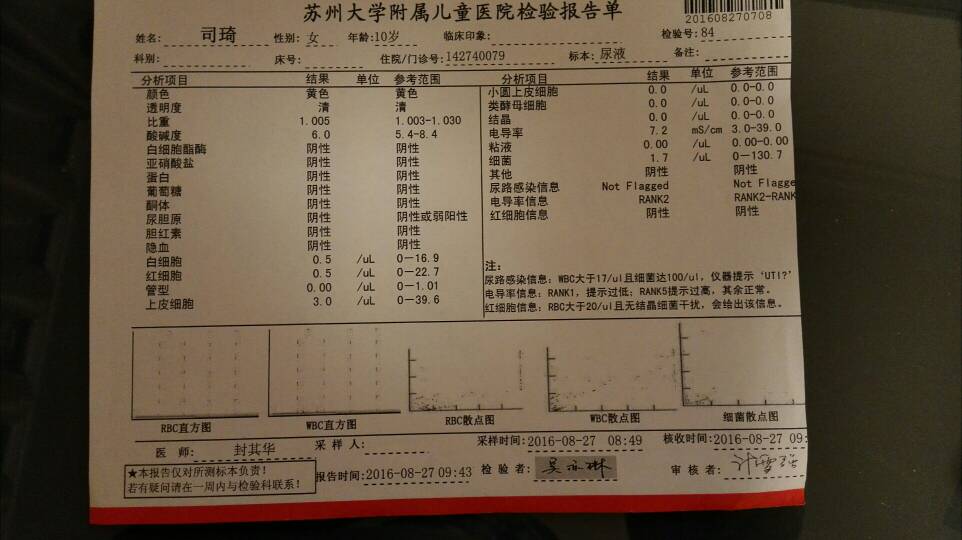 苏州大学附属儿童医院检验报告单
201608270708
姓名: 司琦 性别: 女 年龄:10岁 临床印象: 检验号:84
科别: 床号: 住院/门诊号:142740079 标本:尿液 备注:
分析项目 结果 单位 参考范围
颜色 黄色 黄色
透明度 清 清
比重 1.005 1.003-1.030
酸碱度 6.0 5.4-8.4
白细胞酯酶 阴性 阴性
亚硝酸盐 阴性 阴性
蛋白 阴性 阴性
葡萄糖 阴性 阴性
酮体 阴性 阴性
尿胆原 阴性 阴性或弱阳性
胆红素 阴性 阴性
隐血 阴性 阴性
白细胞 0.5 /uL 0—16.9
红细胞 0.5 /uL 0—22.7
管型 0.00 /uL 0—1.01
上皮细胞 3.0 /uL 0—39.6
分析项目 结果 单位 参考范围
小圆上皮细胞 0.0 /uL 0.0-0.0
类酵母细胞 0.0 /uL 0.0-0.0
结晶 0.0 /uL 0.0-0.0
电导率 7.2 mS/cm 3.0-39.0
粘液 0.00 /uL 0.00-0.00
细菌 1.7 /uL 0—130.7
其他 阴性 阴性
尿路感染信息 Not Flagged Not Flagge
电导率信息 RANK2 RANK2-RANK
红细胞信息 阴性 阴性
注:
尿路感染信息: WBC大于17/ul且细菌达100/ul, 仪器提示‘UTI?’
电导率信息: RANK1, 提示过低; RANK5提示过高, 其余正常。
红细胞信息: RBC大于20/ul且无结晶细菌干扰, 会给出该信息。
RBC直方图 WBC直方图 RBC散点图 WBC散点图 细菌散点图
医 师: 封其华 采 样 人: 采样时间:2016-08-27 08:49 核收时间:2016-08-27 09:
★本报告仅对所测标本负责!
若有疑问请在一周内与检验科联系!
报告时间:2016-08-27 09:43 检 验 者: 吴永琳 审 核 者: